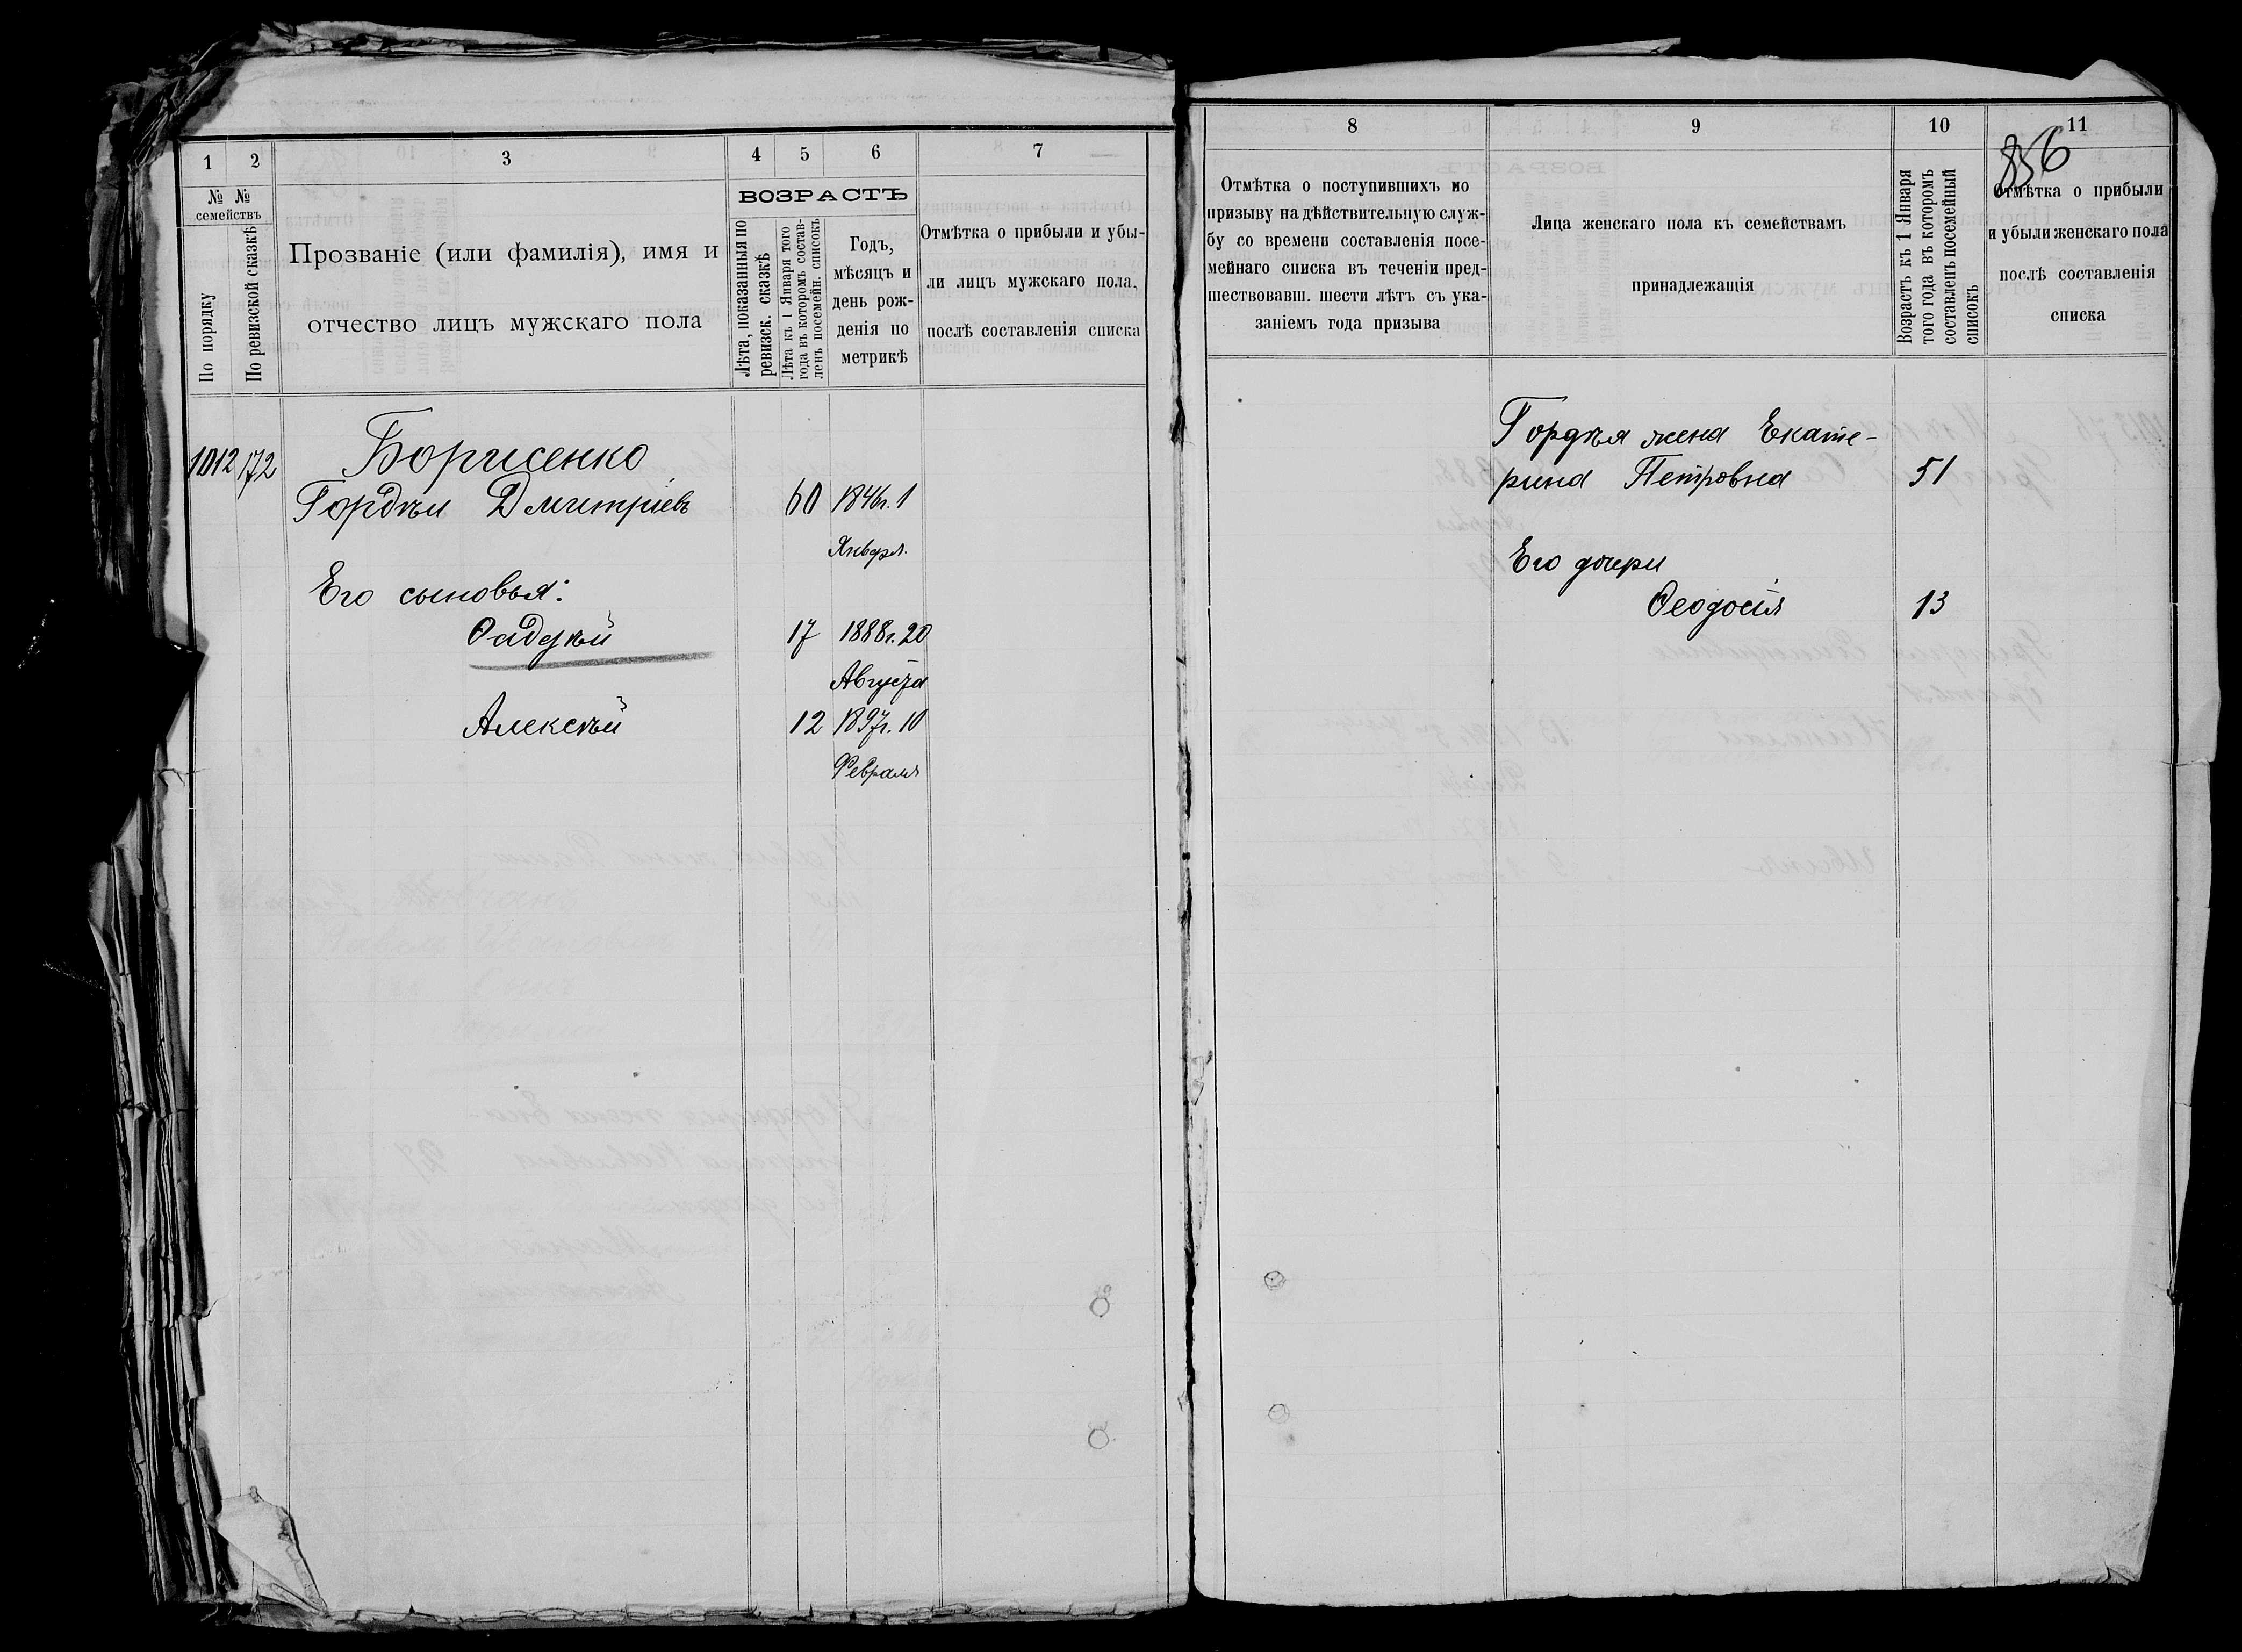 1
2
3
4
5
6
7
№ №
семействъ
По порядку
По ревизской сказкѣ
Прозваніе (или фамилія), имя и
отчество лицъ мужскаго пола
ВОЗРАСТЪ
Лѣта, показанныя по
ревизск. сказкѣ
Лѣта къ 1 Января того
года въ которомъ состав-
ленъ посемейн. списокъ
Годъ,
мѣсяцъ и
день рож-
денія по
метрикѣ
Отмѣтка о прибыли и убы-
ли лицъ мужскаго пола,
послѣ составленія списка
1012 172 Борисенко
Гордѣй Дмитріевъ 60 1846г. 1
Января.
Его сыновья:
Фадѣй 17 1888г. 20
Августа
Алексѣй 12 1897г. 10
Февраля
8
9
10
11
856
Отмѣтка о поступившихъ по
призыву на дѣйствительную служ-
бу со времени составленія посе-
мейнаго списка въ теченіи пред-
шествовавш. шести лѣтъ съ ука-
заніемъ года призыва
Лица женскаго пола къ семействамъ
принадлежащія
Возрастъ къ 1 Января
того года въ которомъ
составленъ посемейный
списокъ
Отмѣтка о прибыли
и убыли женскаго пола
послѣ составленія
списка
Гордѣя жена Екате-
рина Петровна 51
Его дочери
Ѳеодосія 13